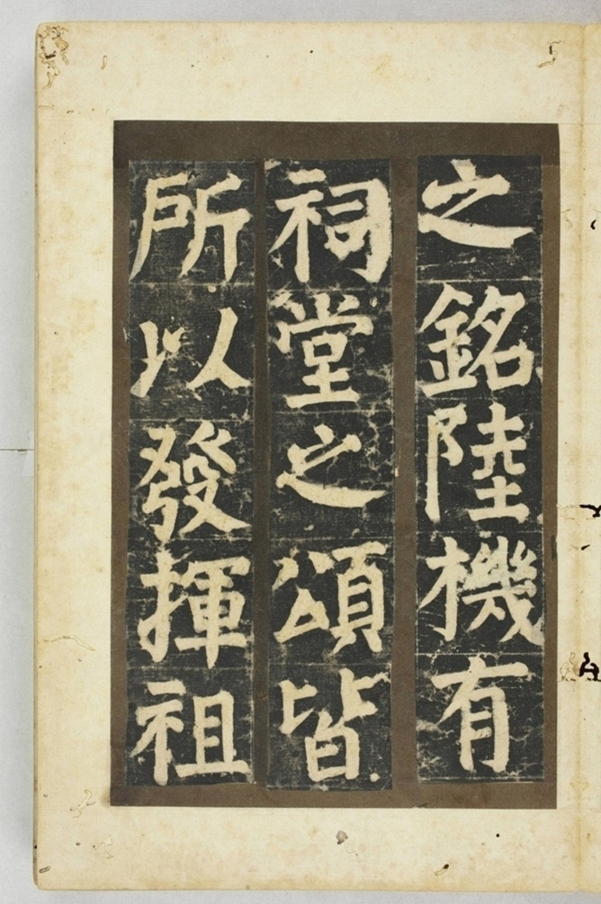 之銘陸機有
祠堂之頌皆
所以發揮祖